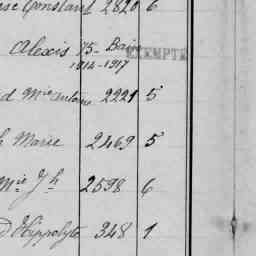 Constant 2820 6
Alexis 75 - Bain EXEMPTÉ
1914-1917
d Mie Antoine 2221 5
h Marie 2469 5
Mie Jh 2598 6
d Hippolyte 348 1